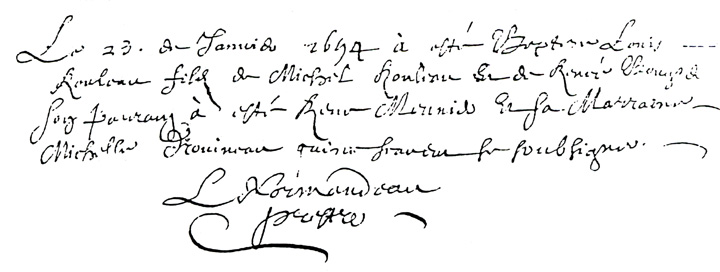 Le 23. de Janvier 1654 à esté Baptisé Louis
Rouleau filz de Michel Rouleau Et de Renée
son parain à esté René Meunier Et sa Marraine
Michelle Drouineau soubsigné.
L Normandeau
prestre